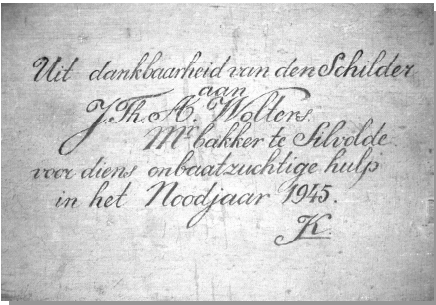 Uit dankbaarheid van den Schilder
aan
J. Th. A. Wolters.
Mr bakker te Silvolde
voor diens onbaatzuchtige hulp
in het Noodjaar 1945.
K.